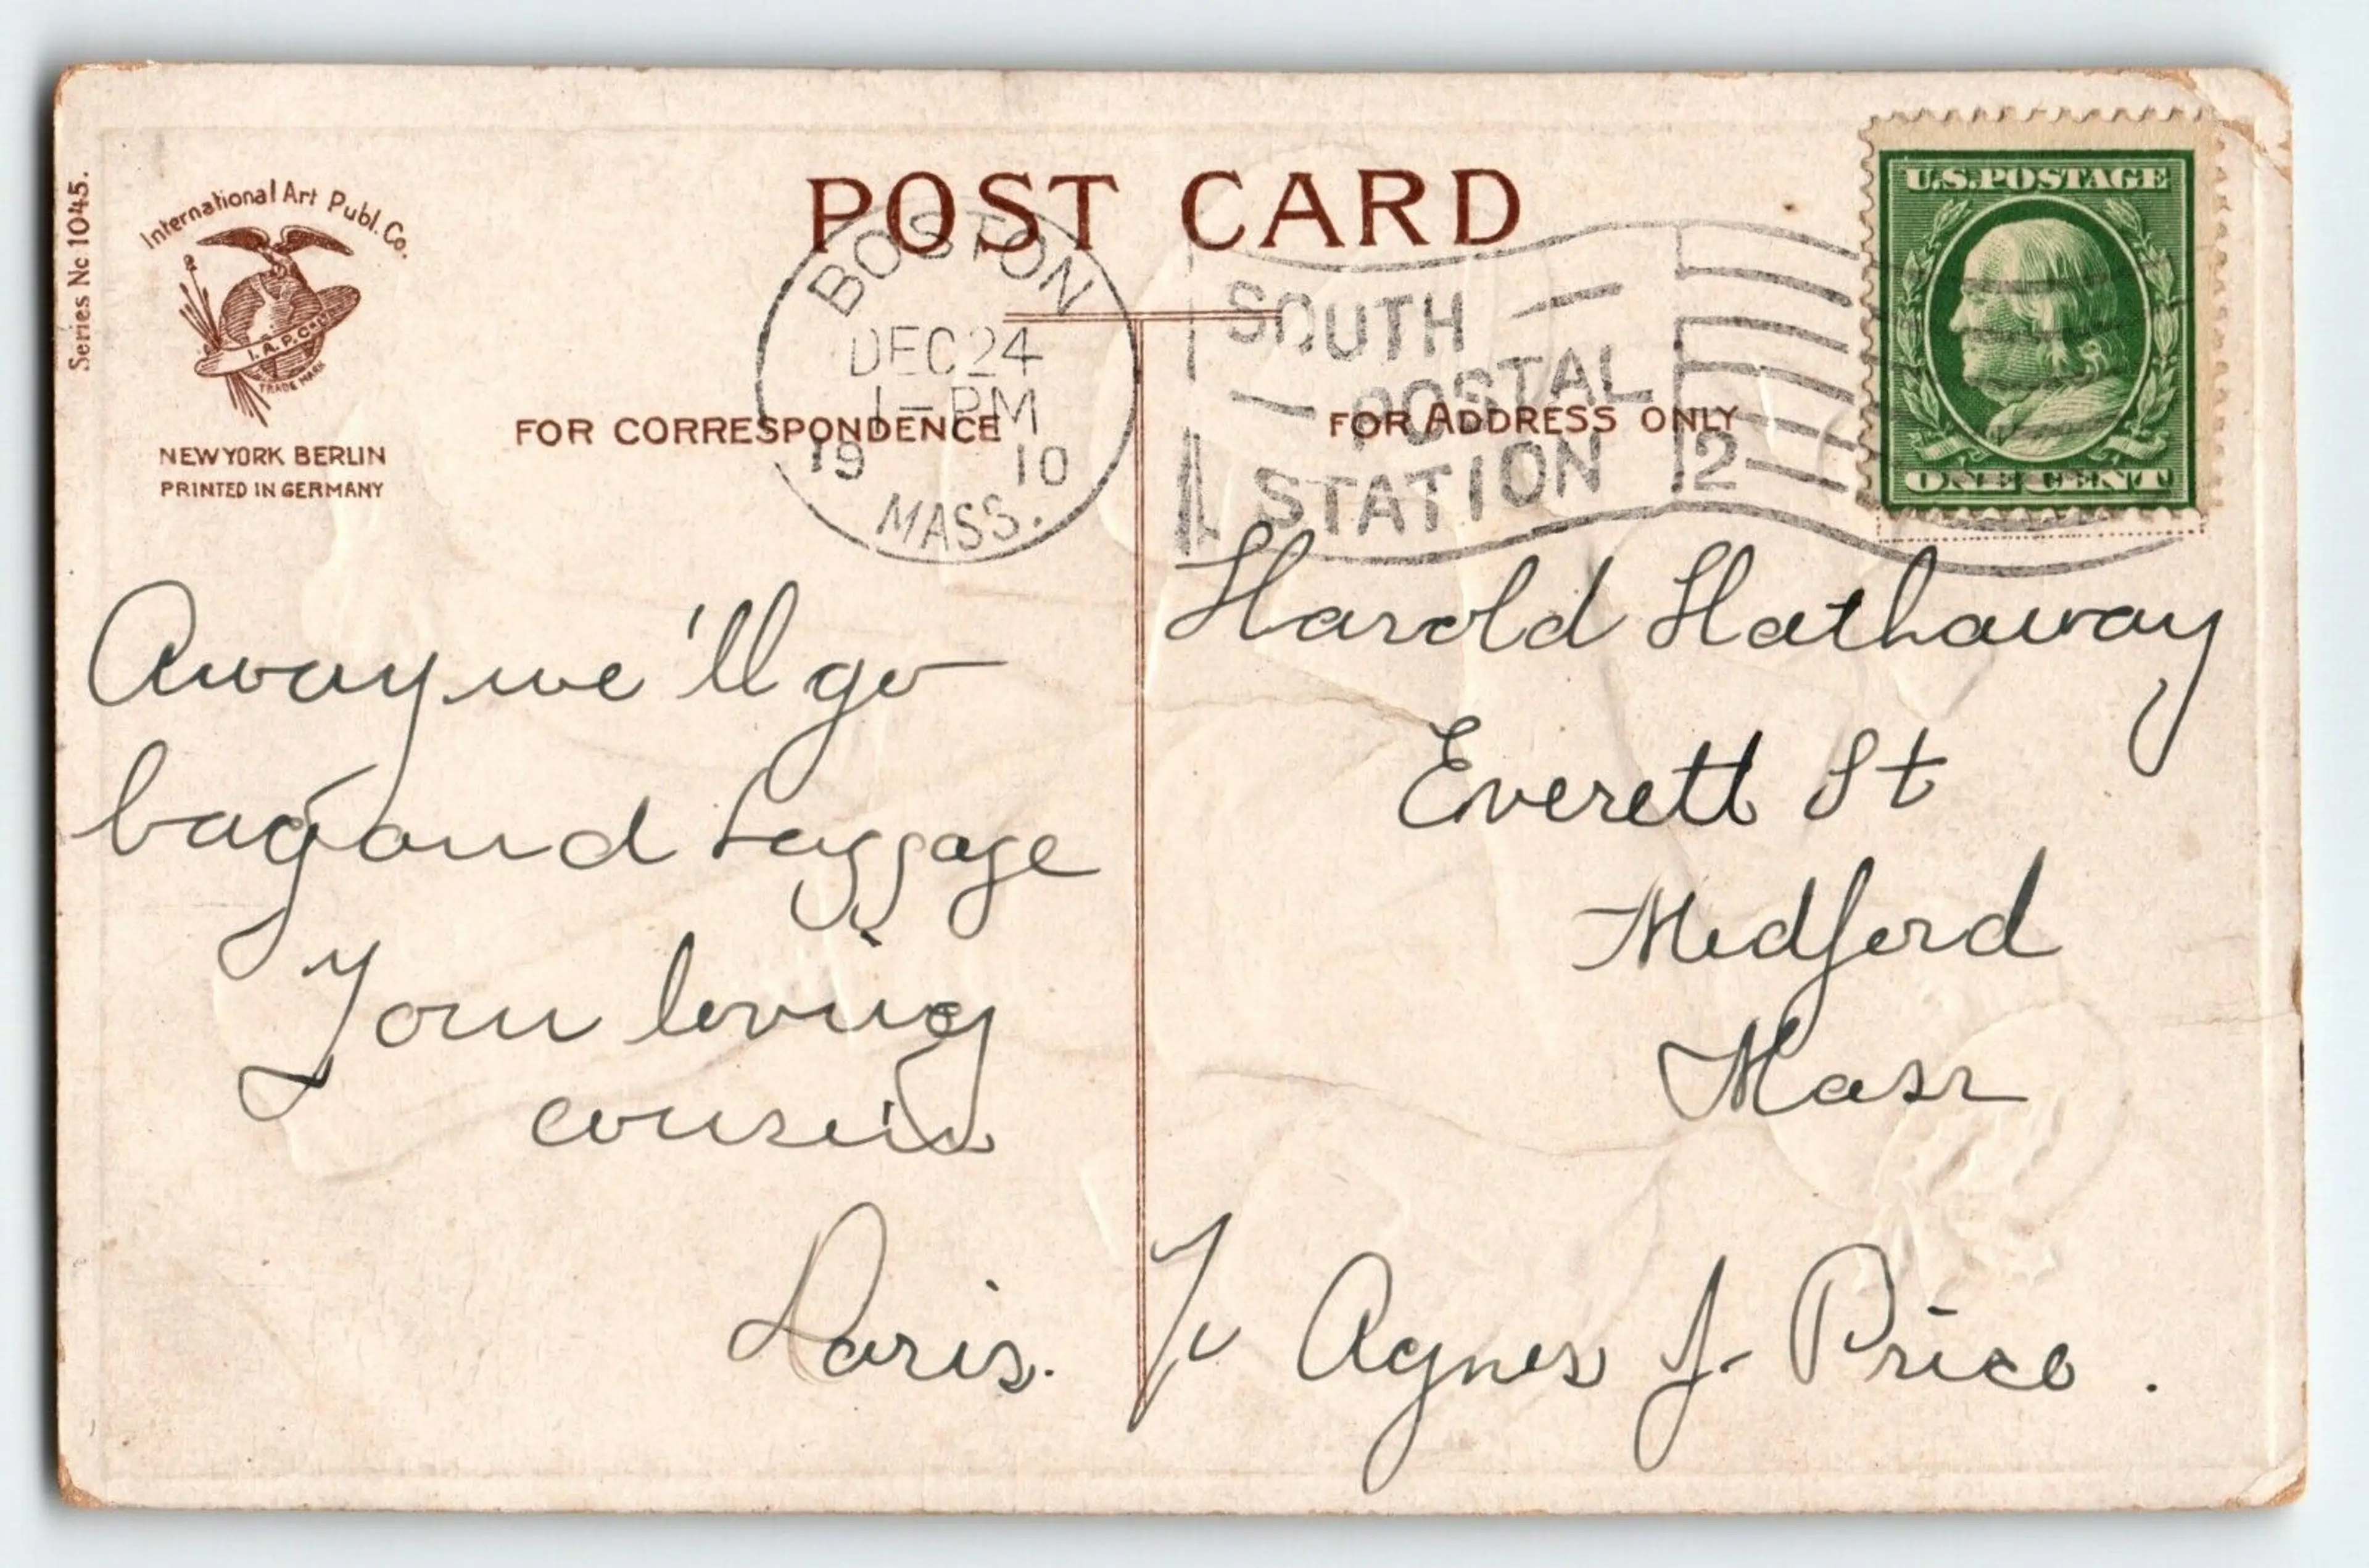 Series No 1045.
International Art Publ. Co.
I. A. P. Co.
TRADE MARK
NEW YORK BERLIN
PRINTED IN GERMANY
POST CARD
FOR CORRESPONDENCE
FOR ADDRESS ONLY
BOSTON
DEC 24
1-PM
19 10
MASS.
SOUTH
POSTAL
STATION
2
U.S.POSTAGE
ONE CENT
Away we'll go
bag and baggage
Your loving
cousin
Doris.
Harold Hathaway
Everett St
Medford
Mass
To Agnes J. Price.